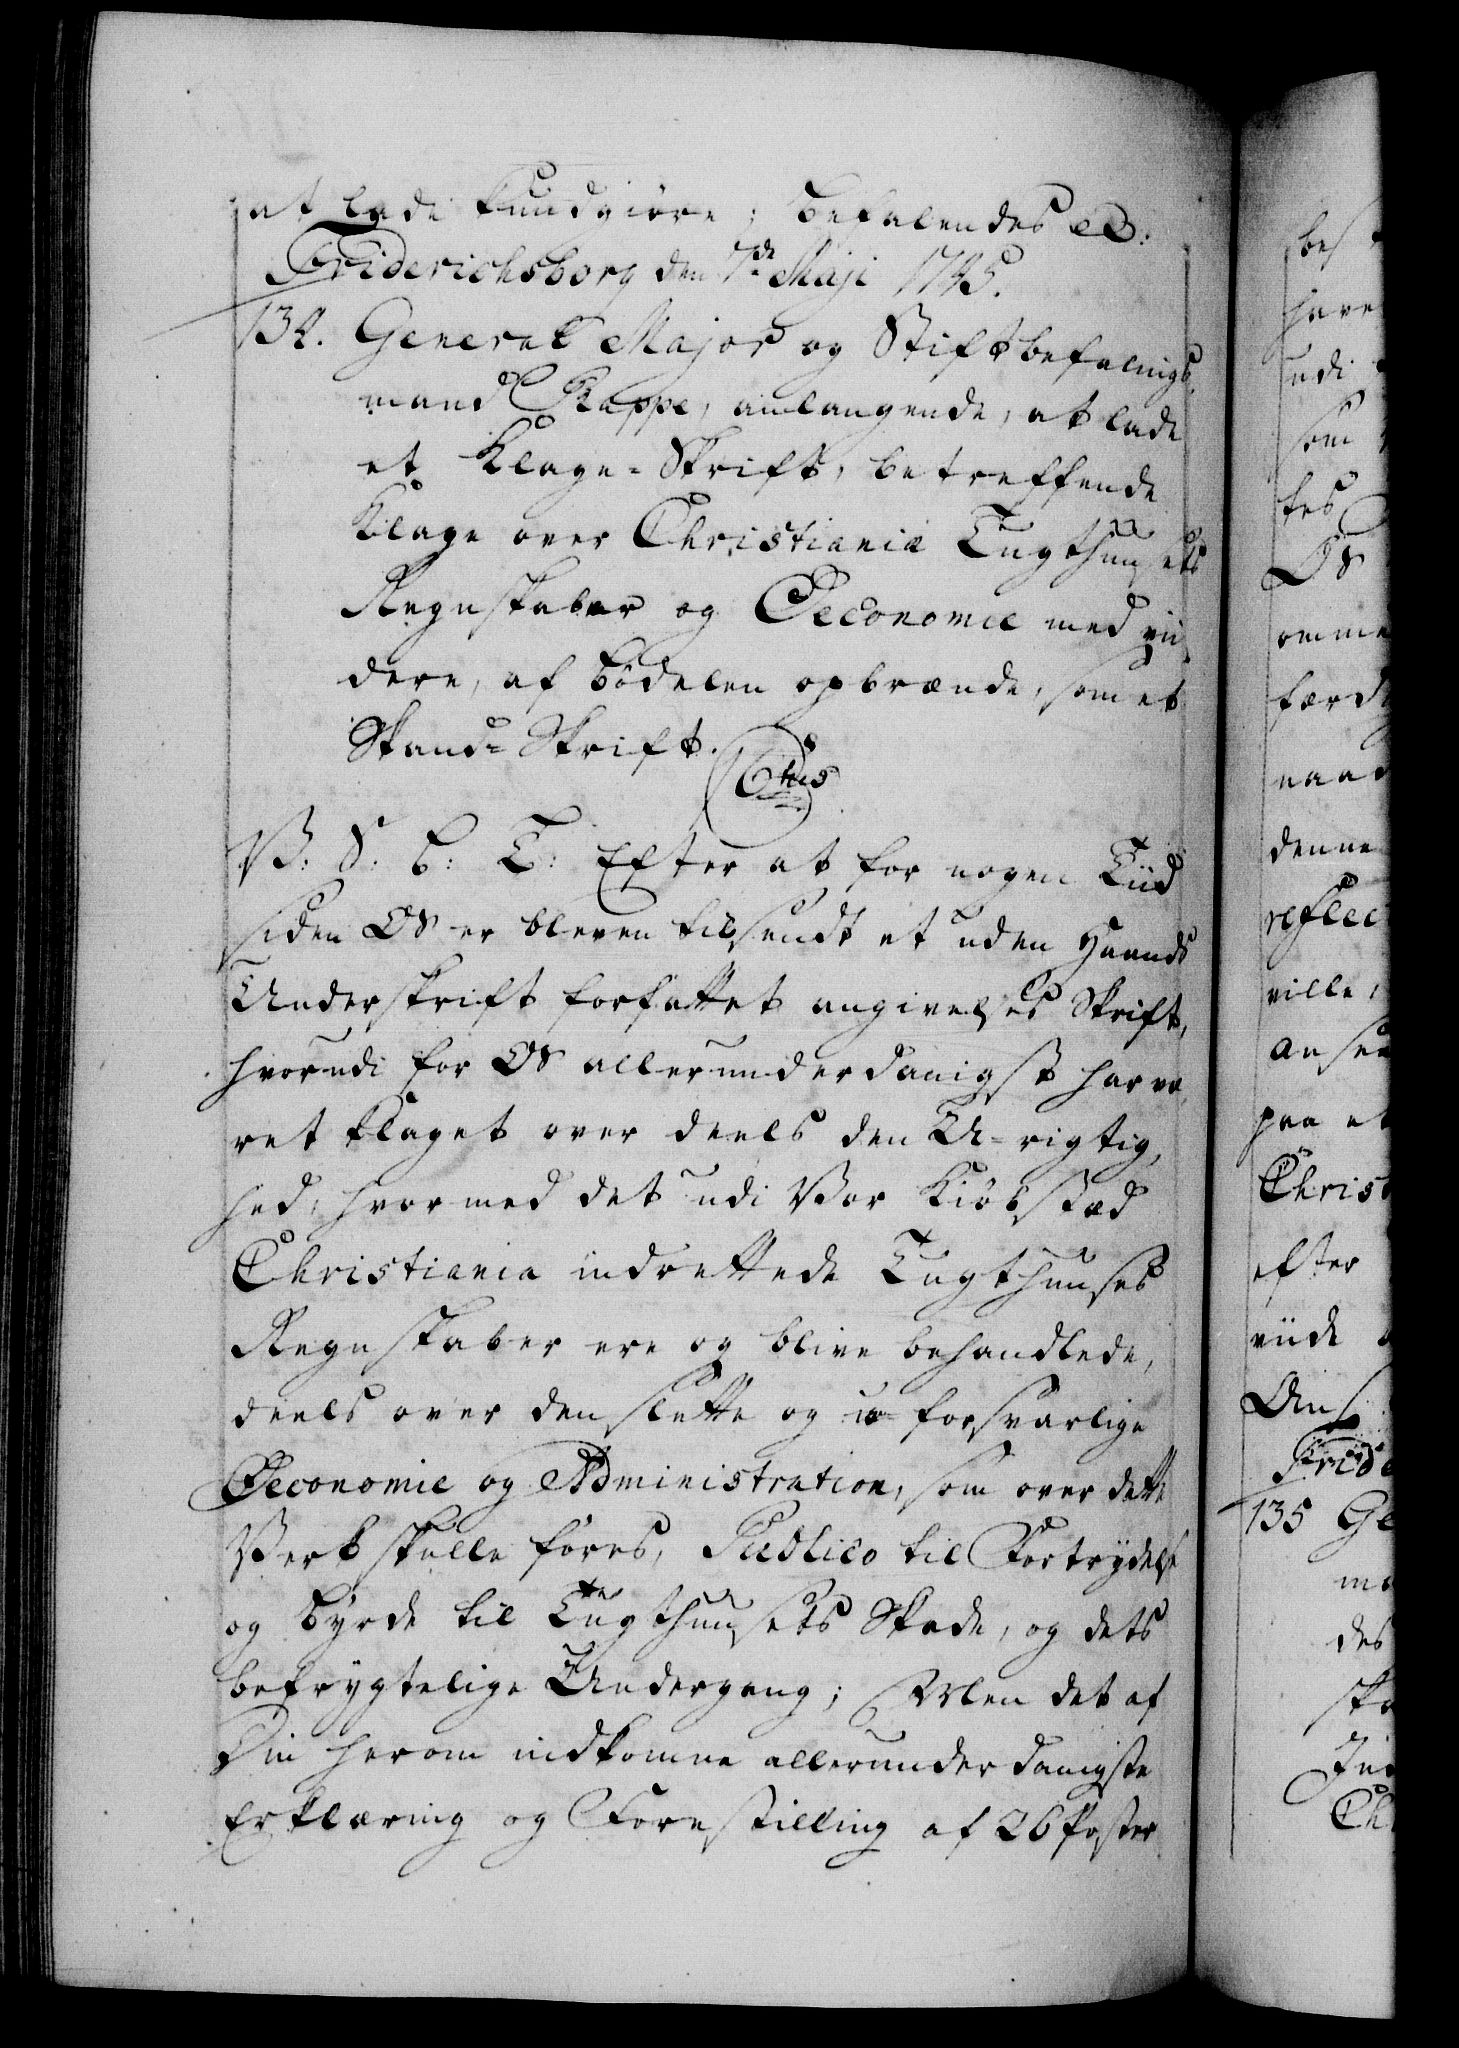 at lade kundgiøre; befalendes etc:
Friderichsborg den 7de Maji 1745.
134. General Major og Stiftbefalings,
mand Rappe, anlangende, at lade
et Klage-Skrift, betreffende
Klage over Christiania Tugthuusets
Regnskaber og Oeconomie med vii
dere, af Bødelen opbrænde, som et
Skand-Skrift.
V: S: G: T: Efter at for nogen Tiid
siden OS er bleven tilsendt et uden Haands
Underskrift forfattet angivelses Skrift,
hvorudi for OS allerunderdanigst har væ,
ret klaget over deels den U-rigtig,
hed, hvormed det udi Vor Kiøbstad
Christiania indrettede Tugthuuses
Regnskaber ere og blive behandlede,
deels over den slette og u-forsvarlige
Oeconomie og Administration, som over dette
Verk skulle føres, Publico til Fortrydelse
og Byrde til Tugthuusets Skade, og dets
befrygtelige Undergang; Men det af
Din herom indkomne allerunderdanigste
Erklæring og Forestilling af 26 Poster
bes
have
udi
som
tes
OS
omme
færdi
naad
denne
reflec
ville,
Ansee
paa et
Christ
efter
viide
Ans
Fride
135 Ge
ma
des
ska
Ind
Ch